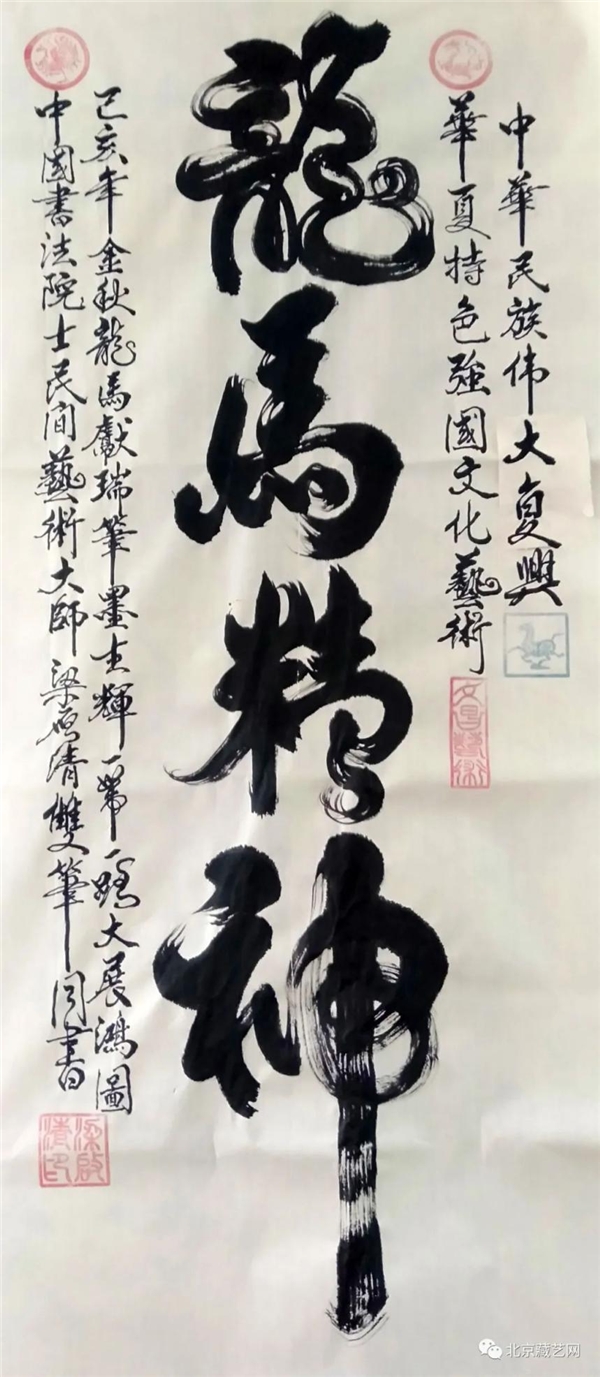 中華民族伟大复興
華夏特色強國文化藝術
龍馬精神
己亥年金秋龍馬獻瑞筆墨生輝一帶一路大展鴻圖
中國書法院士民间藝術大師梁启清雙筆同書
梁啟清印
北京藏艺网